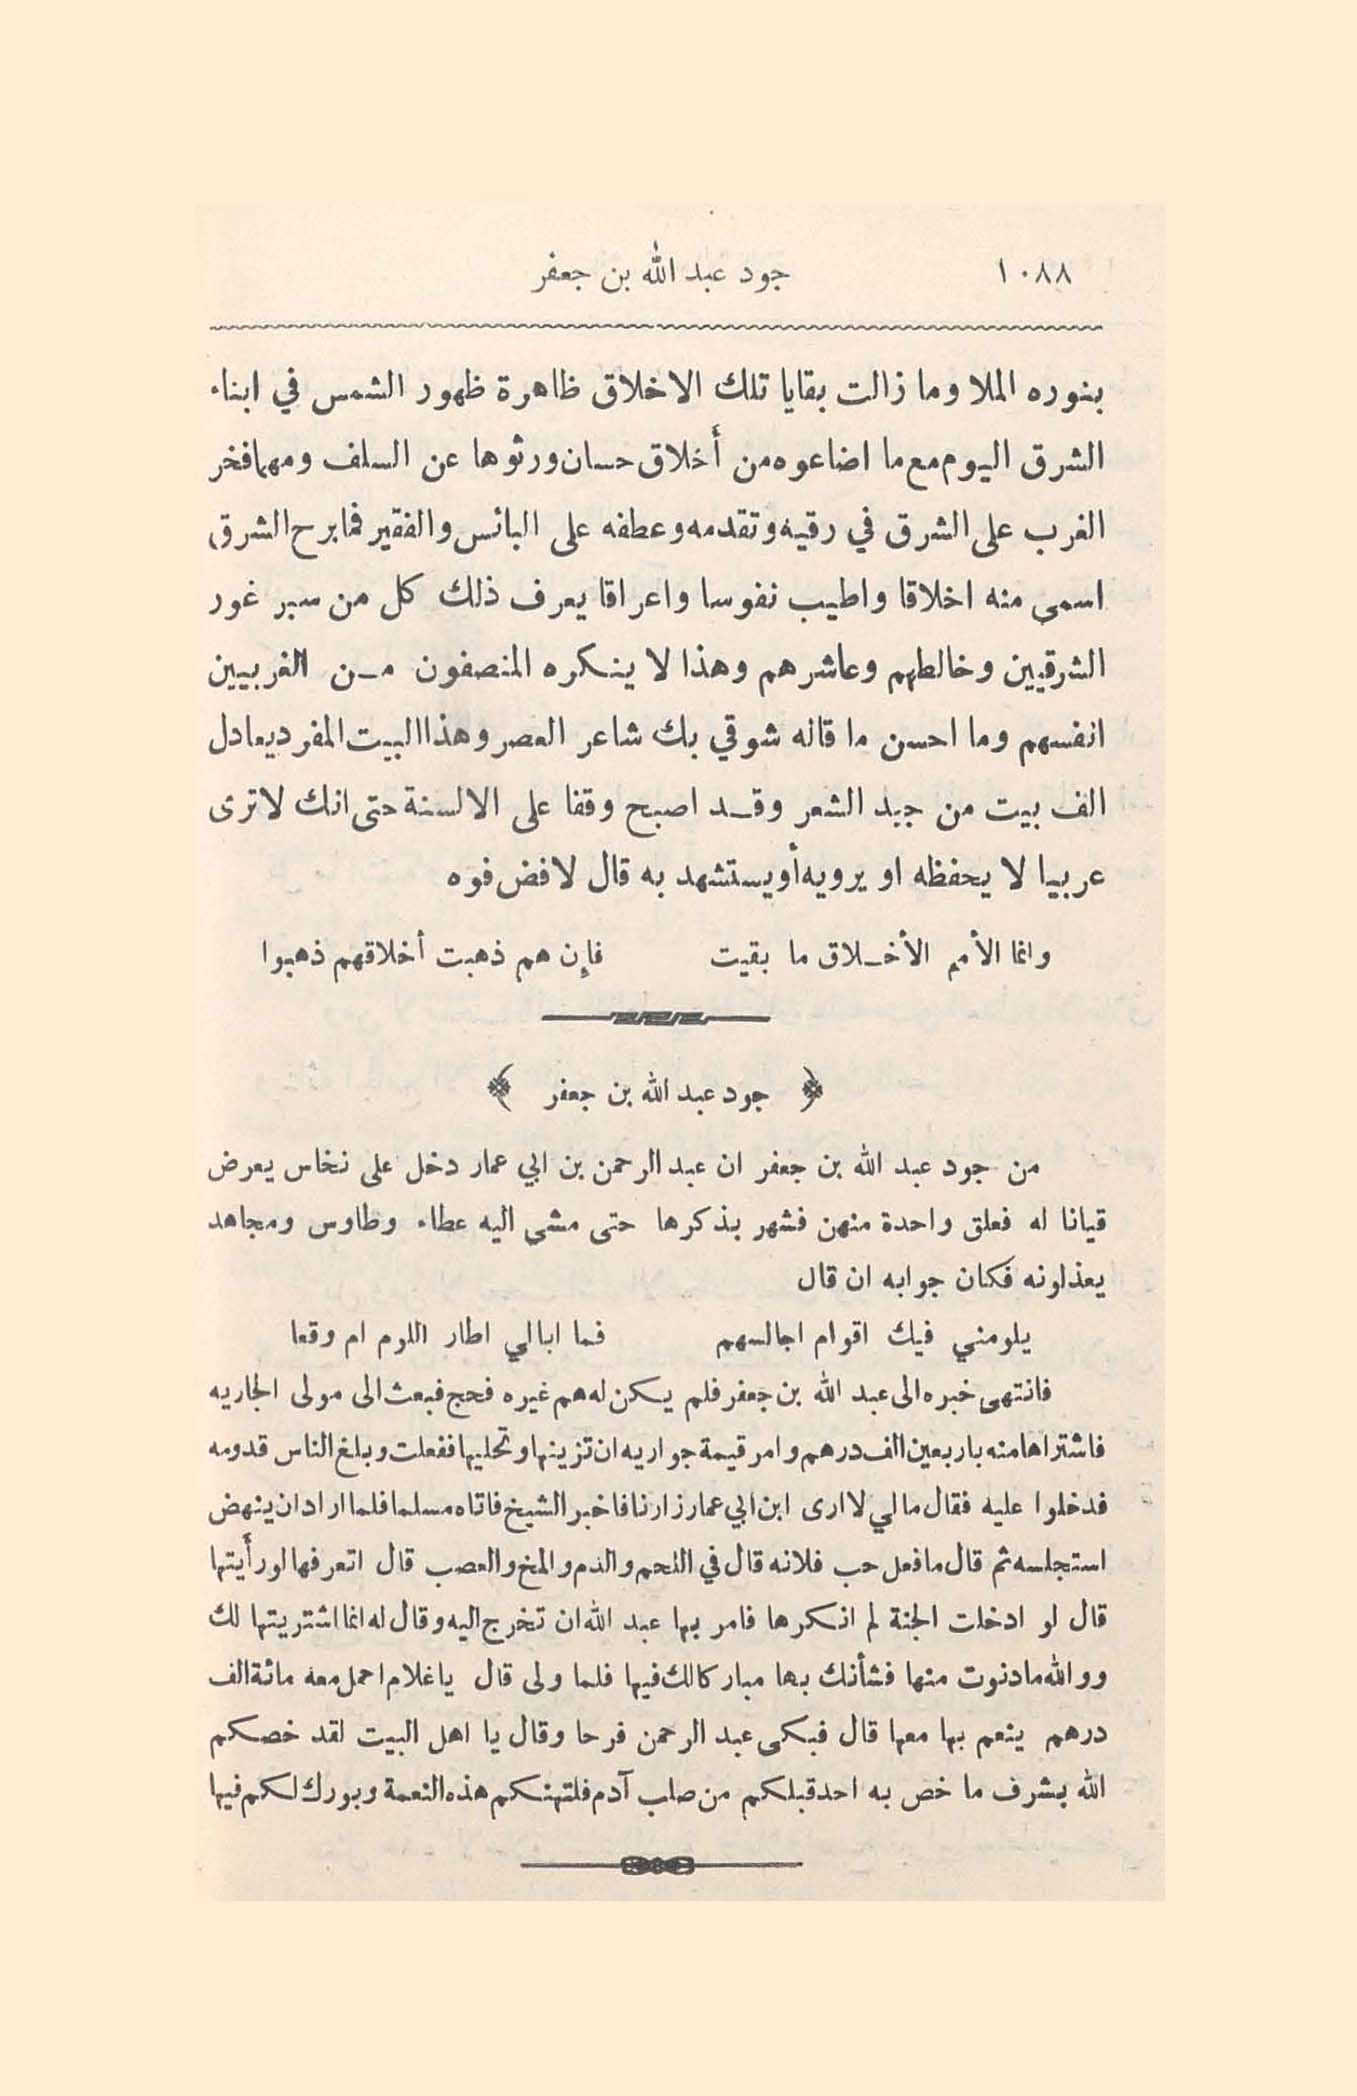 ١٠٨٨ جود عبد الله بن جعفر
بنوره الملا وما زالت بقايا تلك الاخلاق ظاهرة ظهور الشمس في ابناء
الشرق اليوم مع ما اضاعوه من أخلاق حسان ورثوها عن السلف ومهما فخر
الغرب على الشرق في رقيه وتقدمه وعطفه على البائس والفقير فما برح الشرق
اسمى منه اخلاقا واطيب نفوسا واعراقا يعرف ذلك كل من سبر غور
الشرقيين وخالطهم وعاشرهم وهذا لا ينكره المنصفون من الغربيين
انفسهم وما احسن ما قاله شوقي بك شاعر العصر وهذا البيت المفرد يعادل
الف بيت من جيد الشعر وقد اصبح وقفا على الالسنة حتى انك لا ترى
عربيا لا يحفظه او يرويه أو يستشهد به قال لا فض فوه
وانما الأمم الأخلاق ما بقيت فإن هم ذهبت أخلاقهم ذهبوا
﴿ جود عبد الله بن جعفر ﴾
من جود عبد الله بن جعفر ان عبد الرحمن بن ابي عمار دخل على نخاس يعرض
قيانا له فعلق واحدة منهن فشهر بذكرها حتى مشى اليه عطاء وطاوس ومجاهد
يعذلونه فكان جوابه ان قال
يلومني فيك اقوام اجالسهم فما ابالي اطار اللوم ام وقعا
فانتهى خبره الى عبد الله بن جعفر فلم يكن له هم غيره فحج فبعث الى مولى الجاريه
فاشتراها منه باربعين الف درهم وامر قيمة جواريه ان تزينها وتحليها ففعلت وبلغ الناس قدومه
فدخلوا عليه فقال مالي لا ارى ابن ابي عمار زارنا فاخبر الشيخ فاتاه مسلما فلما اراد ان ينهض
استجلسه ثم قال ما فعل حب فلانه قال في اللحم والدم والمخ والعصب قال اتعرفها لو رأيتها
قال لو ادخلت الجنة لم انكرها فامر بها عبد الله ان تخرج اليه وقال له انما اشتريتها لك
ووالله ما دنوت منها فشأنك بها مباركا لك فيها فلما ولى قال يا غلام احمل معه مائة الف
درهم ينعم بها معها قال فبكى عبد الرحمن فرحا وقال يا اهل البيت لقد خصكم
الله بشرف ما خص به احد قبلكم من صلب آدم فلتهنكم هذه النعمة وبورك لكم فيها